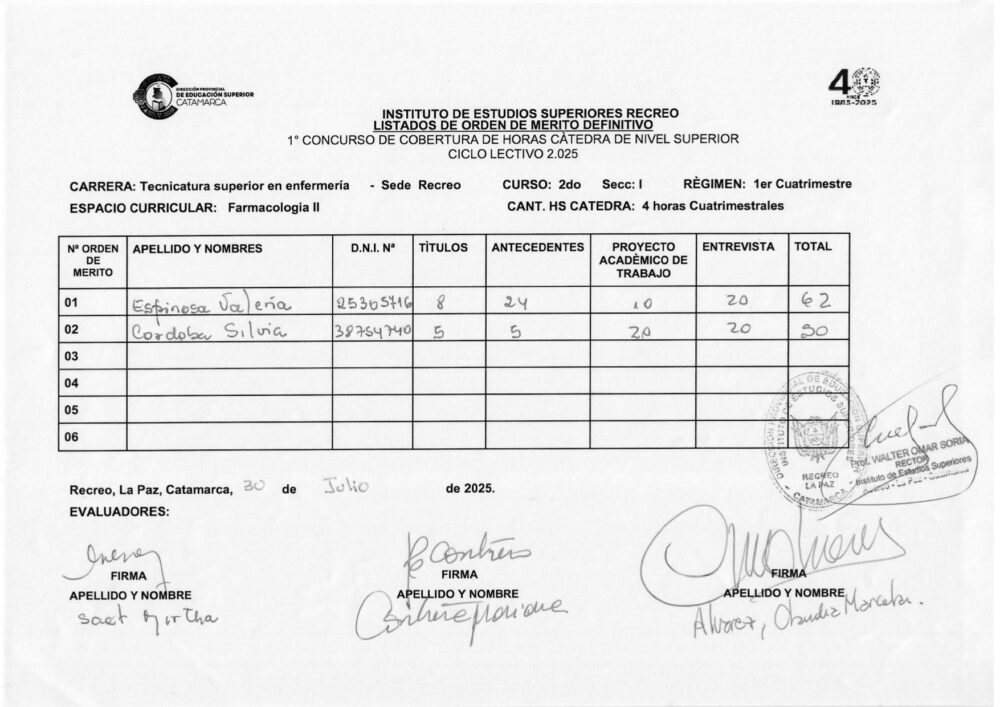 DIRECCIÓN PROVINCIAL
DE EDUCACIÓN SUPERIOR
CATAMARCA
40
1985-2025
INSTITUTO DE ESTUDIOS SUPERIORES RECREO
LISTADOS DE ORDEN DE MERITO DEFINITIVO
1° CONCURSO DE COBERTURA DE HORAS CÀTEDRA DE NIVEL SUPERIOR
CICLO LECTIVO 2.025
CARRERA: Tecnicatura superior en enfermería - Sede Recreo CURSO: 2do Secc: I RÈGIMEN: 1er Cuatrimestre
ESPACIO CURRICULAR: Farmacologia II CANT. HS CATEDRA: 4 horas Cuatrimestrales
Nª ORDEN DE MERITO APELLIDO Y NOMBRES D.N.I. Nª TÌTULOS ANTECEDENTES PROYECTO ACADÈMICO DE TRABAJO ENTREVISTA TOTAL
01 Espinosa Valeria 25305716 8 24 10 20 62
02 Cordoba Silvia 38754740 5 5 20 20 50
03
04
05
06
DIRECCIÓN PROVINCIAL DE EDUCACIÓN SUPERIOR
INSTITUTO DE ESTUDIOS SUPERIORES
RECREO
LA PAZ
CATAMARCA
Prof. WALTER OMAR SORIA
RECTOR
Instituto de Estudios Superiores
Recreo - La Paz - Catamarca
Recreo, La Paz, Catamarca, 30 de Julio de 2025.
EVALUADORES:
FIRMA FIRMA FIRMA
APELLIDO Y NOMBRE APELLIDO Y NOMBRE APELLIDO Y NOMBRE
Alvarez, Claudia Marcela.